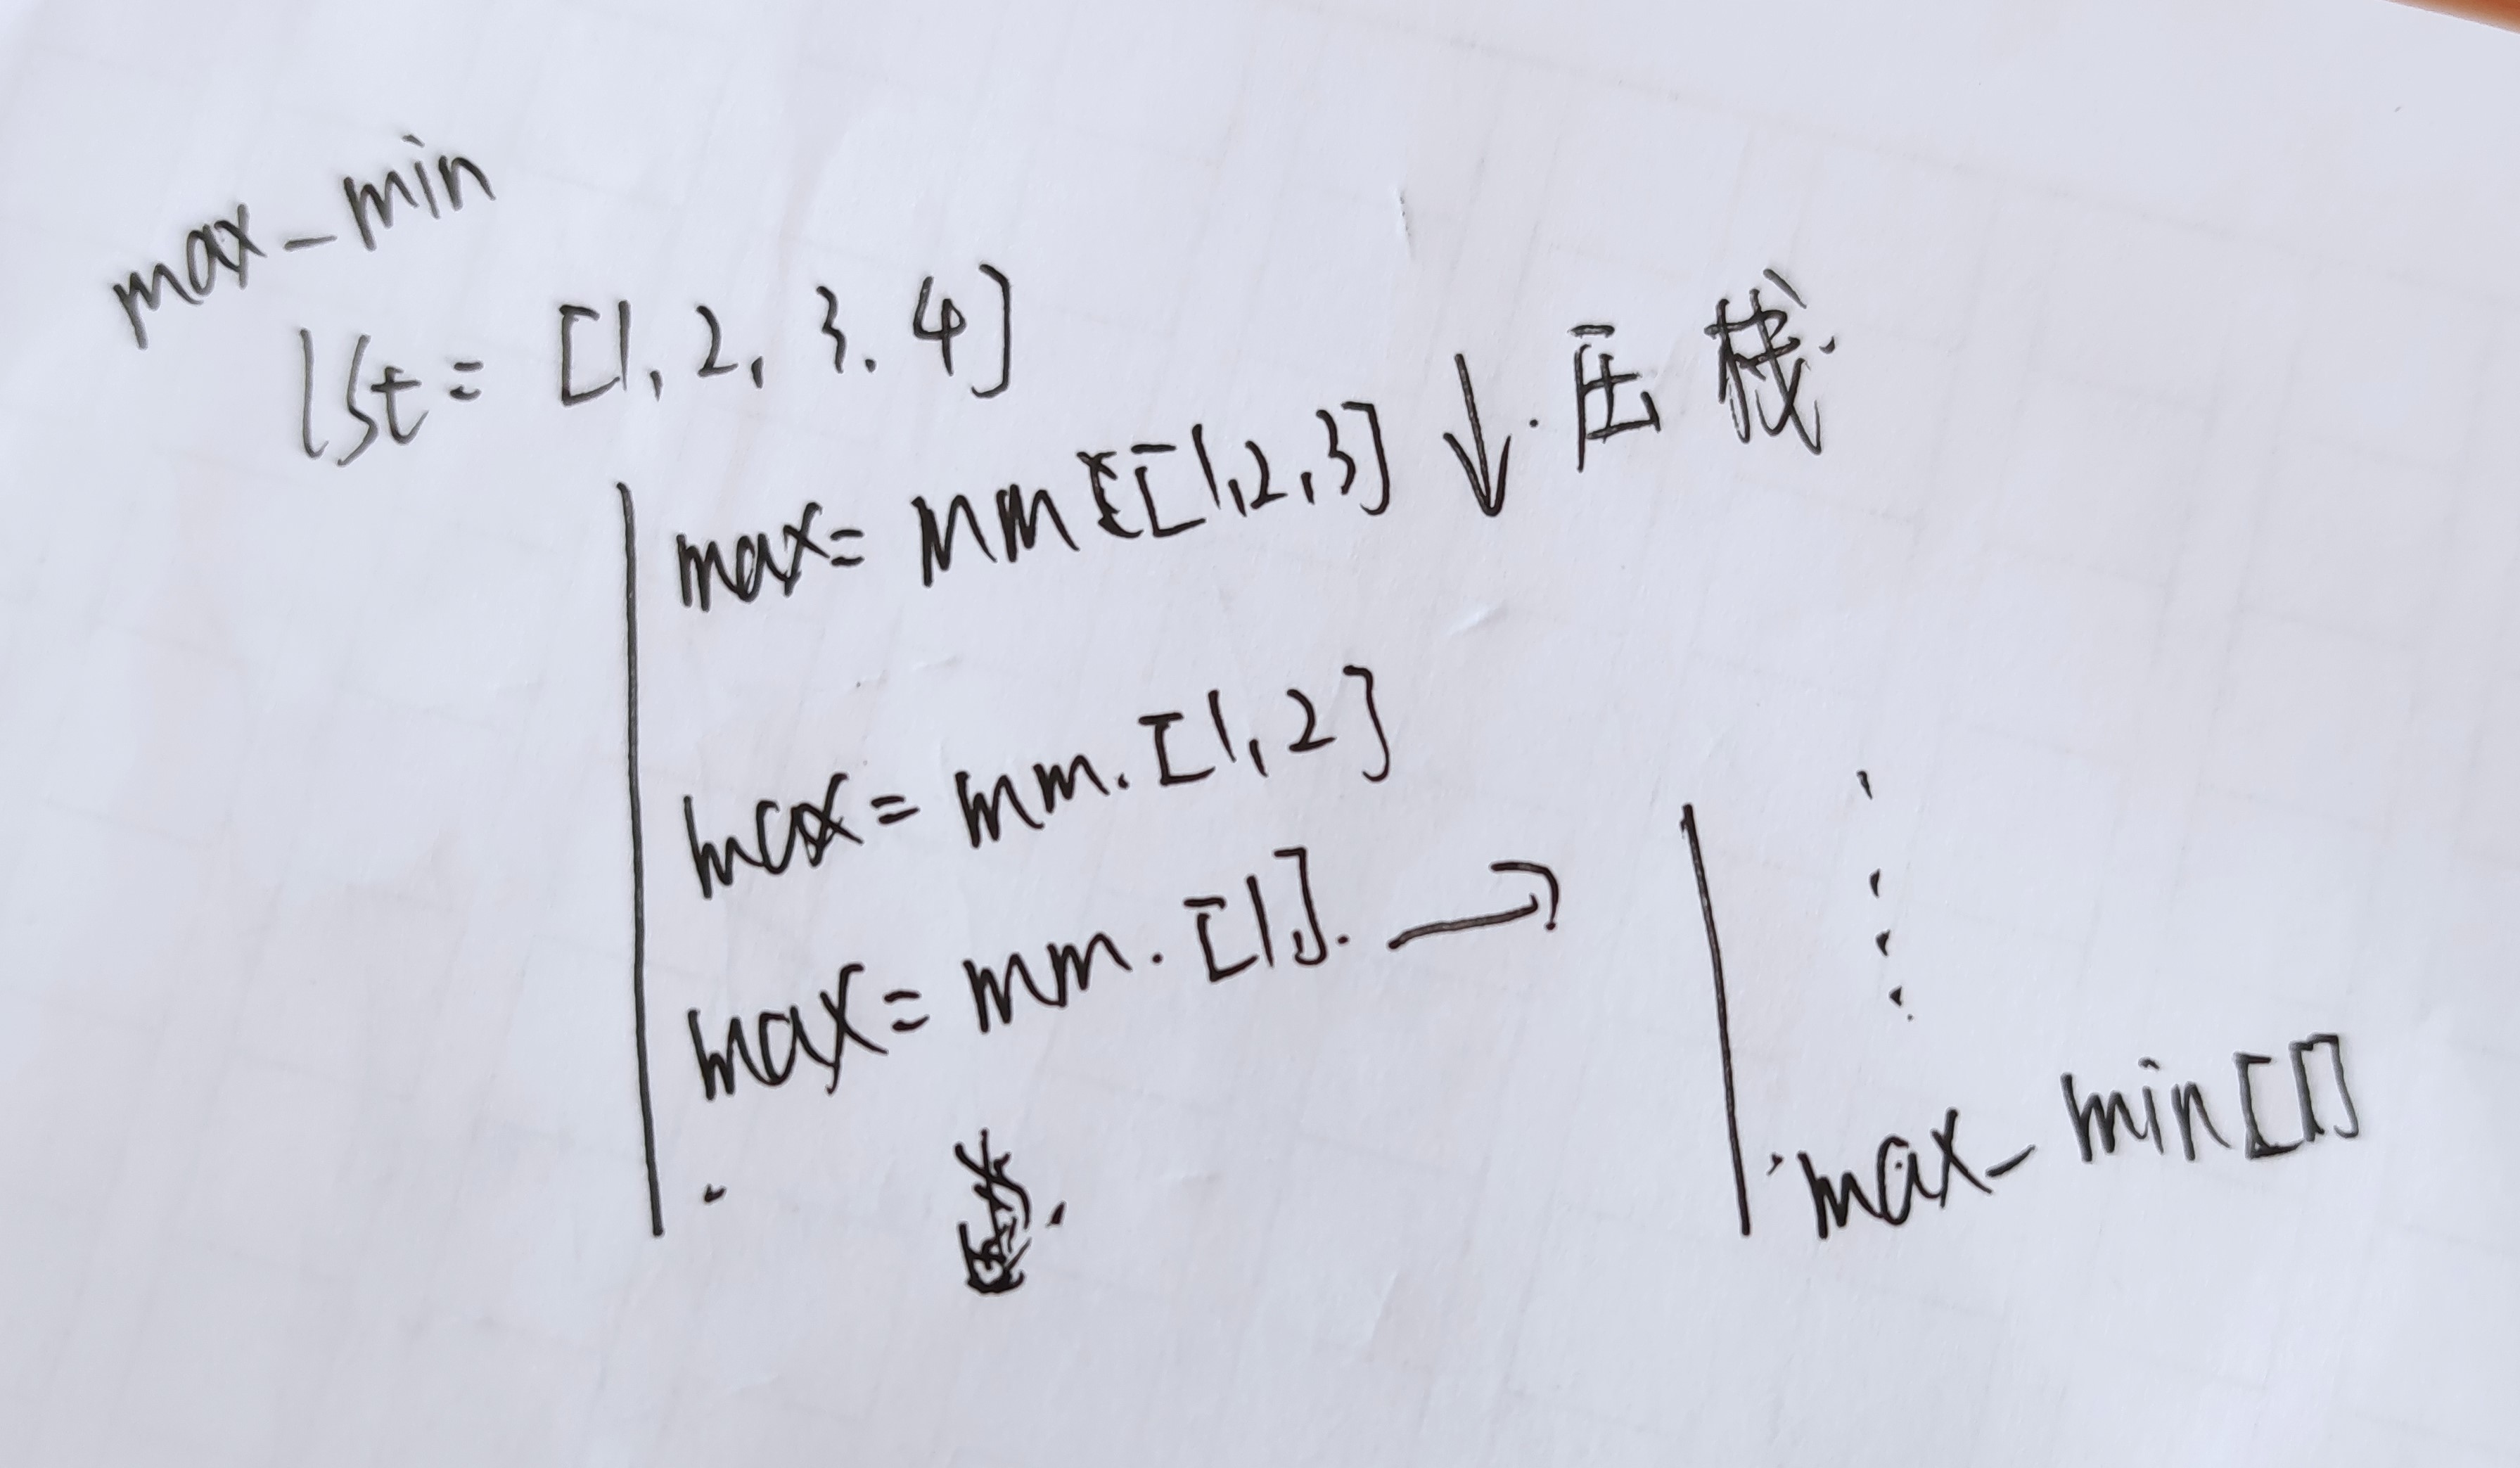 max_min
lst = [1, 2, 3. 4]
压栈.
max = mm [[1,2,3]
max = mm. [1, 2]
max = mm. [1].
max_min []